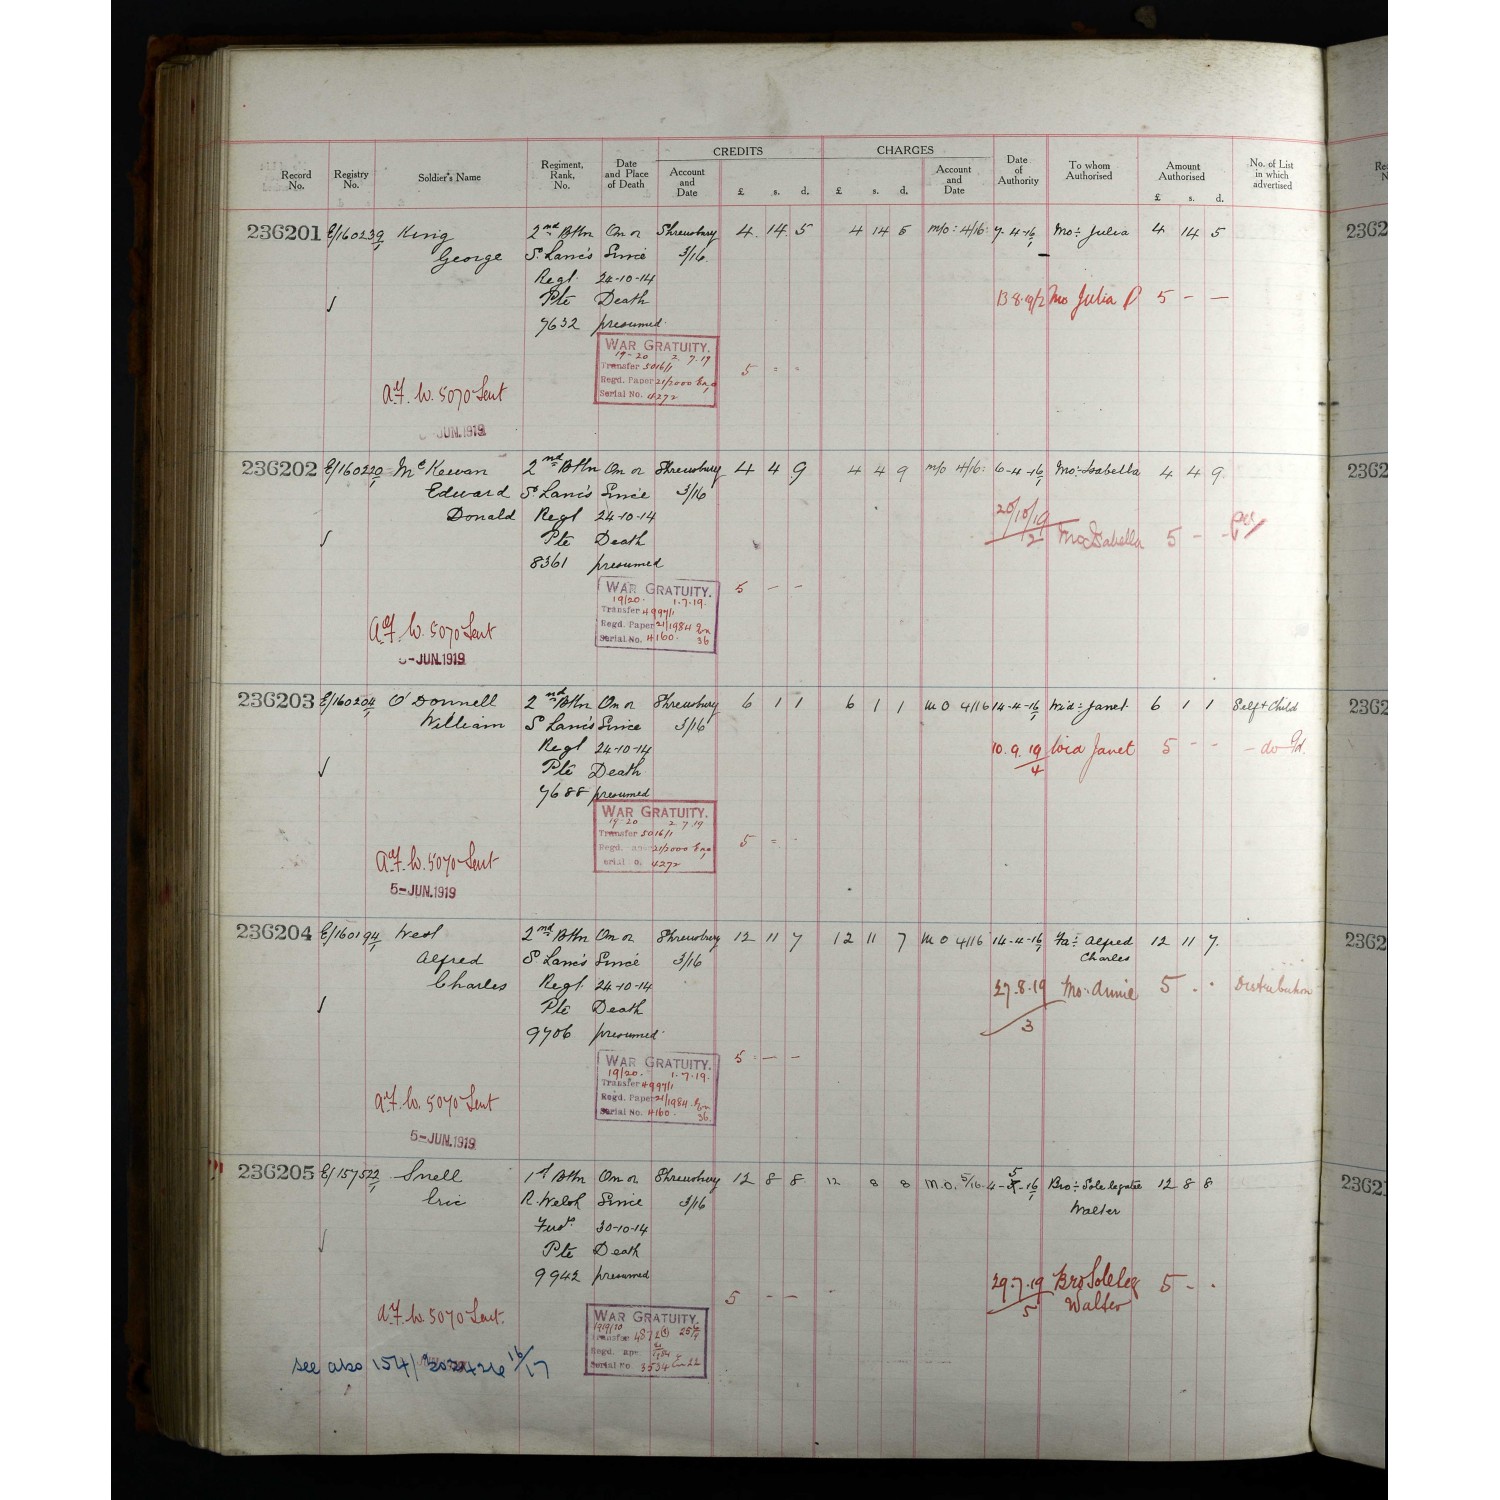 CREDITS CHARGES
Record No. Registry No. Soldier's Name Regiment, Rank, No. Date and Place of Death Account and Date £ s. d. £ s. d. Account and Date Date of Authority To whom Authorised Amount Authorised £ s. d. No. of List in which advertised
236201 E/160239/1 King 2nd Bttn On or Shrewsbury 4 14 5 4 14 5 M/O: 4/16 7-4-16/1 Mo: Julia 4 14 5
George S. Lancs Since 3/16
Regt 24-10-14
Pte Death 13.8.19/2 Mo Julia P 5 - -
7632 presumed
WAR GRATUITY.
19-20 2 7.19
Transfer 5016/1 5 = -
Regd. Paper 21/2000
Serial No. 4272
A.F. W. 5070 Sent
JUN.1919
236202 E/160220/1 McKewan 2nd Bttn On or Shrewsbury 4 4 9 4 4 9 M/O 4/16: 6-4-16/1 Mo: Isabella 4 4 9
Edward S. Lancs Since 3/16
Donald Regt 24-10-14 20/10/19
Pte Death 2 Mo Isabella 5 - -
8361 presumed
WAR GRATUITY. 5 - -
19/20. 1.7.19.
Transfer 4997/1
Regd. Paper 21/1984
Serial No. 4160. 36
A.F. W. 5070 Sent
5-JUN.1919
236203 E/160204/1 O'Donnell 2nd Bttn On or Shrewsbury 6 1 1 6 1 1 M O 4/16 14-4-16/1 Wid: Janet 6 1 1 Self & Child
William S. Lancs Since 3/16
Regt 24-10-14 10.9.19/4 Wid Janet 5 - - - do
Pte Death
7688 presumed
WAR GRATUITY.
19-20 2 7 19
Transfer 5016/1 5 = -
Regd. 21/2000
4272
A.F. W. 5070 Sent
5-JUN.1919
236204 E/160194/1 West 2nd Bttn On or Shrewsbury 12 11 7 12 11 7 M O 4/16 14-4-16/1 Fa: Alfred Charles 12 11 7
Alfred S. Lancs Since 3/16
Charles Regt 24-10-14 27.8.19 Mo: Annie 5 - - Distribution
Pte Death 3
9706 presumed
WAR GRATUITY. 5 - -
19/20. 1.7.19.
Transfer 4997/1
Regd. Paper 21/1984
Serial No. 4160. 36.
A.F. W. 5070 Sent
5-JUN.1919
236205 E/157522/1 Snell 1st Bttn On or Shrewsbury 12 8 8 12 8 8 M.O. 5/16 4-5-16/1 Bro: Sole legatee 12 8 8
Eric R. Welsh Since 3/16 Walter
Fusrs 30-10-14
Pte Death
9942 presumed 29.7.19 Bro Sole Leg 5 - -
5 - - 5 Walter
WAR GRATUITY.
1919/20
Transfer
Serial No. 3534
A.F. W. 5070 Sent.
see also 154/ 16/17